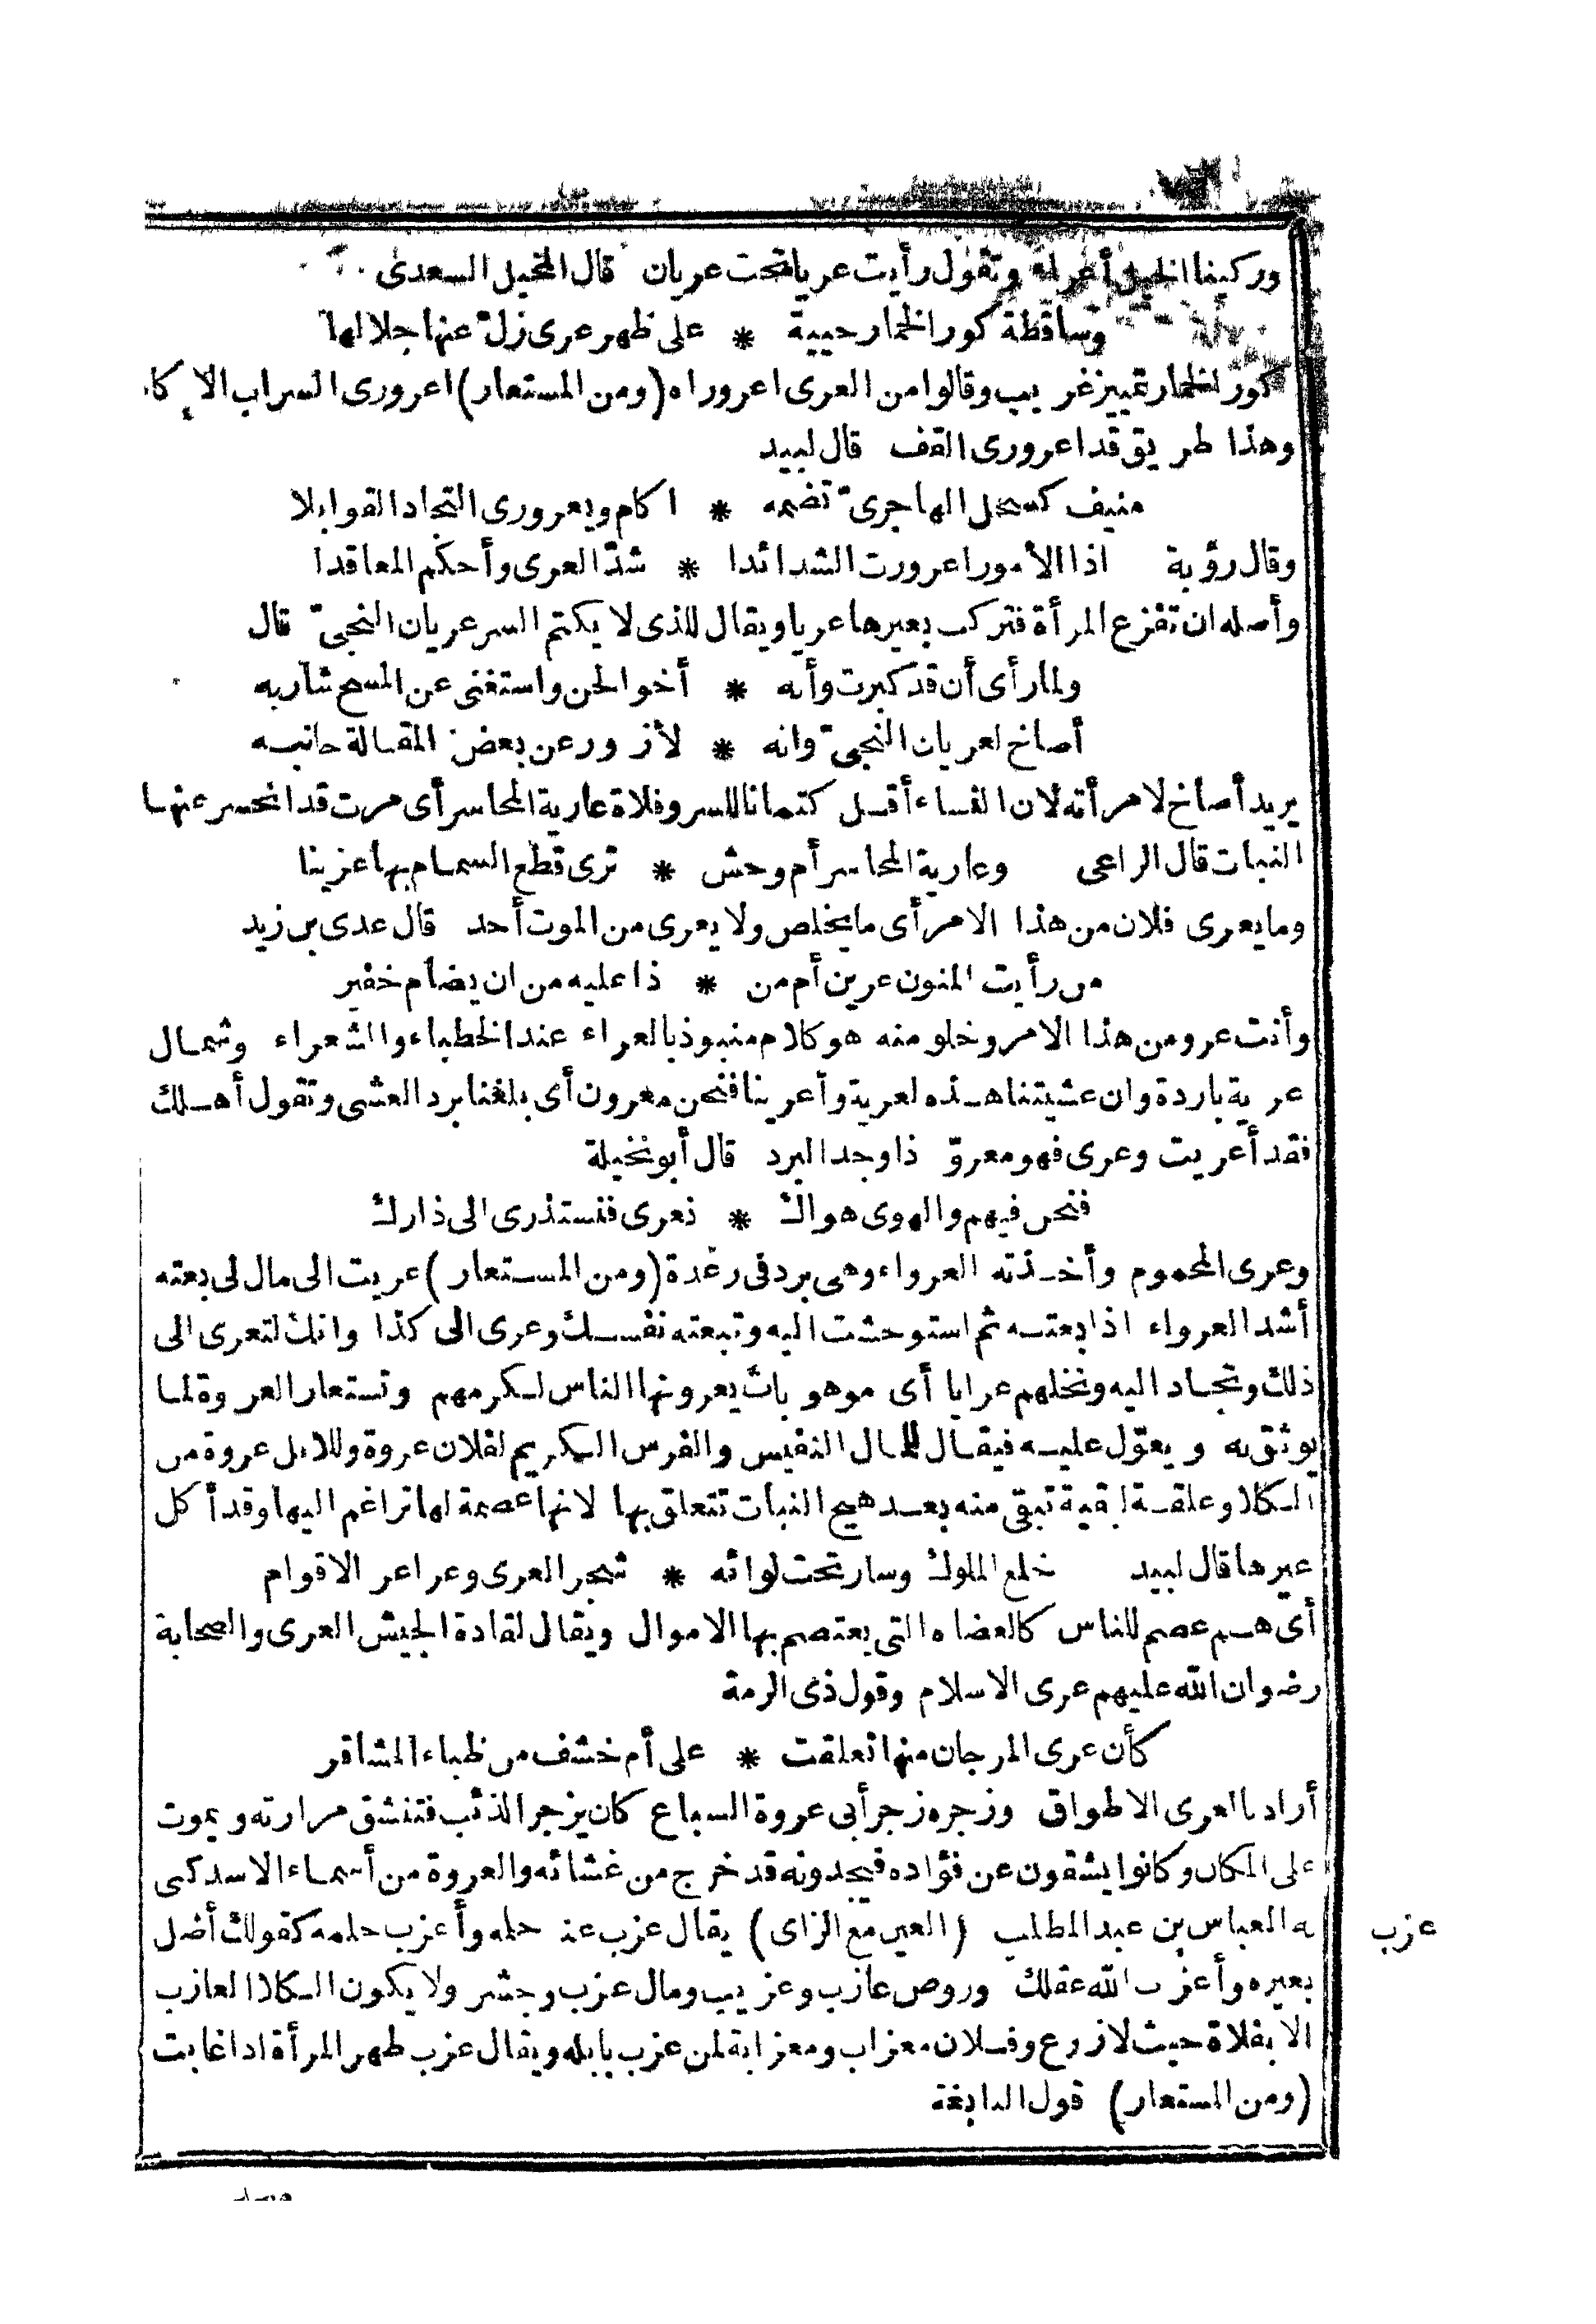 وركبنا الخيل أعراء وتقول رأيت عريا تحت عريان قال المخبل السعدى
وساقطة كور الخمار حيية * على ظهر عرى زل عنها جلالها
كور الخمار تمييز غريب وقالوا من العرى اعروراه (ومن المستعار) اعرورى السراب الاكا
وهذا طريق قد اعرورى القف قال لبيد
منيف كسحل الهاجرىّ تضمه * اكام ويعرورى النجاد القوابلا
وقال رؤبة اذا الأمور اعرورت الشدائدا * شدّ العرى وأحكم المعاقدا
وأصله ان تفزع المرأة فتركب بعيرها عريا ويقال للذى لا يكتم السر عريان النجىّ قال
ولما رأى أن قد كبرت وأنه * أخو الجن واستغنى عن المسح شاربه
أصاخ لعريان النجىّ وانه * لأزور عن بعض المقالة جانبه
يريد أصاخ لامرأته لان النساء أقل كتمانا للسر وفلاة عارية المحاسر أى مرت قد انحسر عنها
النبات قال الراعى وعارية المحاسر أم وحش * ترى قطع السمام بها عزينا
وما يعرى فلان من هذا الامر أى ما يخلص ولا يعرى من الموت أحد قال عدى بن زيد
من رأيت المنون عرين أم من * ذا عليه من ان يضام خفير
وأنت عرو من هذا الامر وخلو منه هو كلام منبوذ بالعراء عند الخطباء والشعراء وشمال
عرية باردة وان عشيتنا هذه لعرية وأعرينا فنحن معرون أى بلغنا برد العشى وتقول أهلك
فقد أعريت وعرى فهو معروّ ذا وجد البرد قال أبو نخيلة
فنحن فيهم والهوى هواك * نعرى فنستذرى الى ذارك
وعرى المحموم وأخذته العرواء وهى برد فى رعدة (ومن المستعار) عريت الى مال لى بعته
أشد العرواء اذا بعته ثم استوحشت اليه وتبعته نفسك وعرى الى كذا وانك لتعرى الى
ذلك وتجاد اليه ونخلهم عرايا أى موهوبات يعرونها الناس لكرمهم وتستعار العروة لما
يوثق به ويعوّل عليه فيقال للمال النفيس والفرس الكريم لفلان عروة وللابل عروة من
الكلا وعلقة لبقية تبقى منه بعد هيج النبات تتعلق بها لانها عصمة لها تراغم اليها وقد أكل
غيرها قال لبيد خلع الملوك وسار تحت لوائه * شجر العرى وعراعر الاقوام
أى هم عصم للناس كالعضاه التى يعتصم بها الاموال ويقال لقادة الجيش العرى والصحابة
رضوان الله عليهم عرى الاسلام وقول ذى الرمة
كأن عرى المرجان منها تعلقت * على أم خشف من ظباء المشاقر
أراد بالعرى الاطواق وزجره زجر أبى عروة السباع كان يزجر الذئب فتنشق مرارته ويموت
على المكان وكانوا يشقون عن فؤاده فيجدونه قد خرج من غشائه والعروة من أسماء الاسد كنى
به العباس بن عبد المطلب (العين مع الزاى) يقال عزب عنه حلمه وأعزب حلمه كقولك أضل
عزب
بعيره وأعزب الله عقلك وروض عازب وعزيب ومال عزب وجشر ولا يكون الكلا العازب
الا بفلاة حيث لا زرع وفلان معزاب ومعزابة لمن عزب بابله ويقال عزب طهر المرأة اذا غابت
(ومن المستعار) قول النابغة